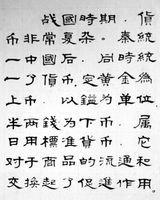 战國時期，貨
币非常复杂。秦統
一中國后，同時統
一了貨币，定黄金為
上币，以鎰為单位，
半两錢為下币，属
日用標准貨币。它
对于商品的流通和
交换起了促進作用